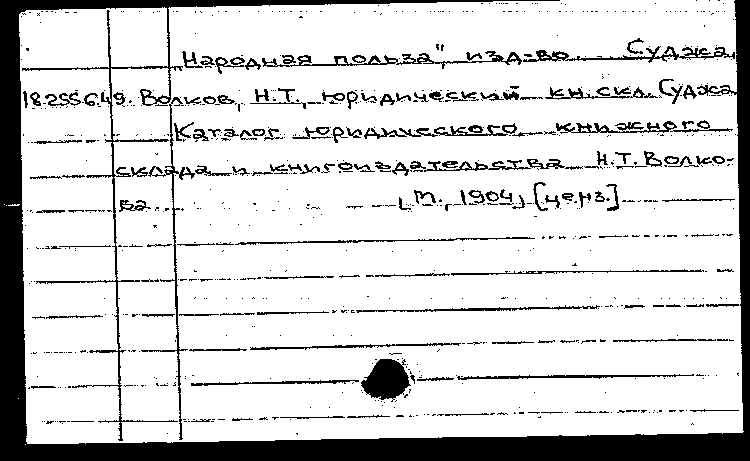 „Народная польза", изд-во. Суджа.
18.255.6.49. Волков, Н.Т., юридический кн. скл. Суджа
Каталог юридического книжного
склада и книгоиздательства Н.Т. Волко-
ва. М., 1904, [ценз.]